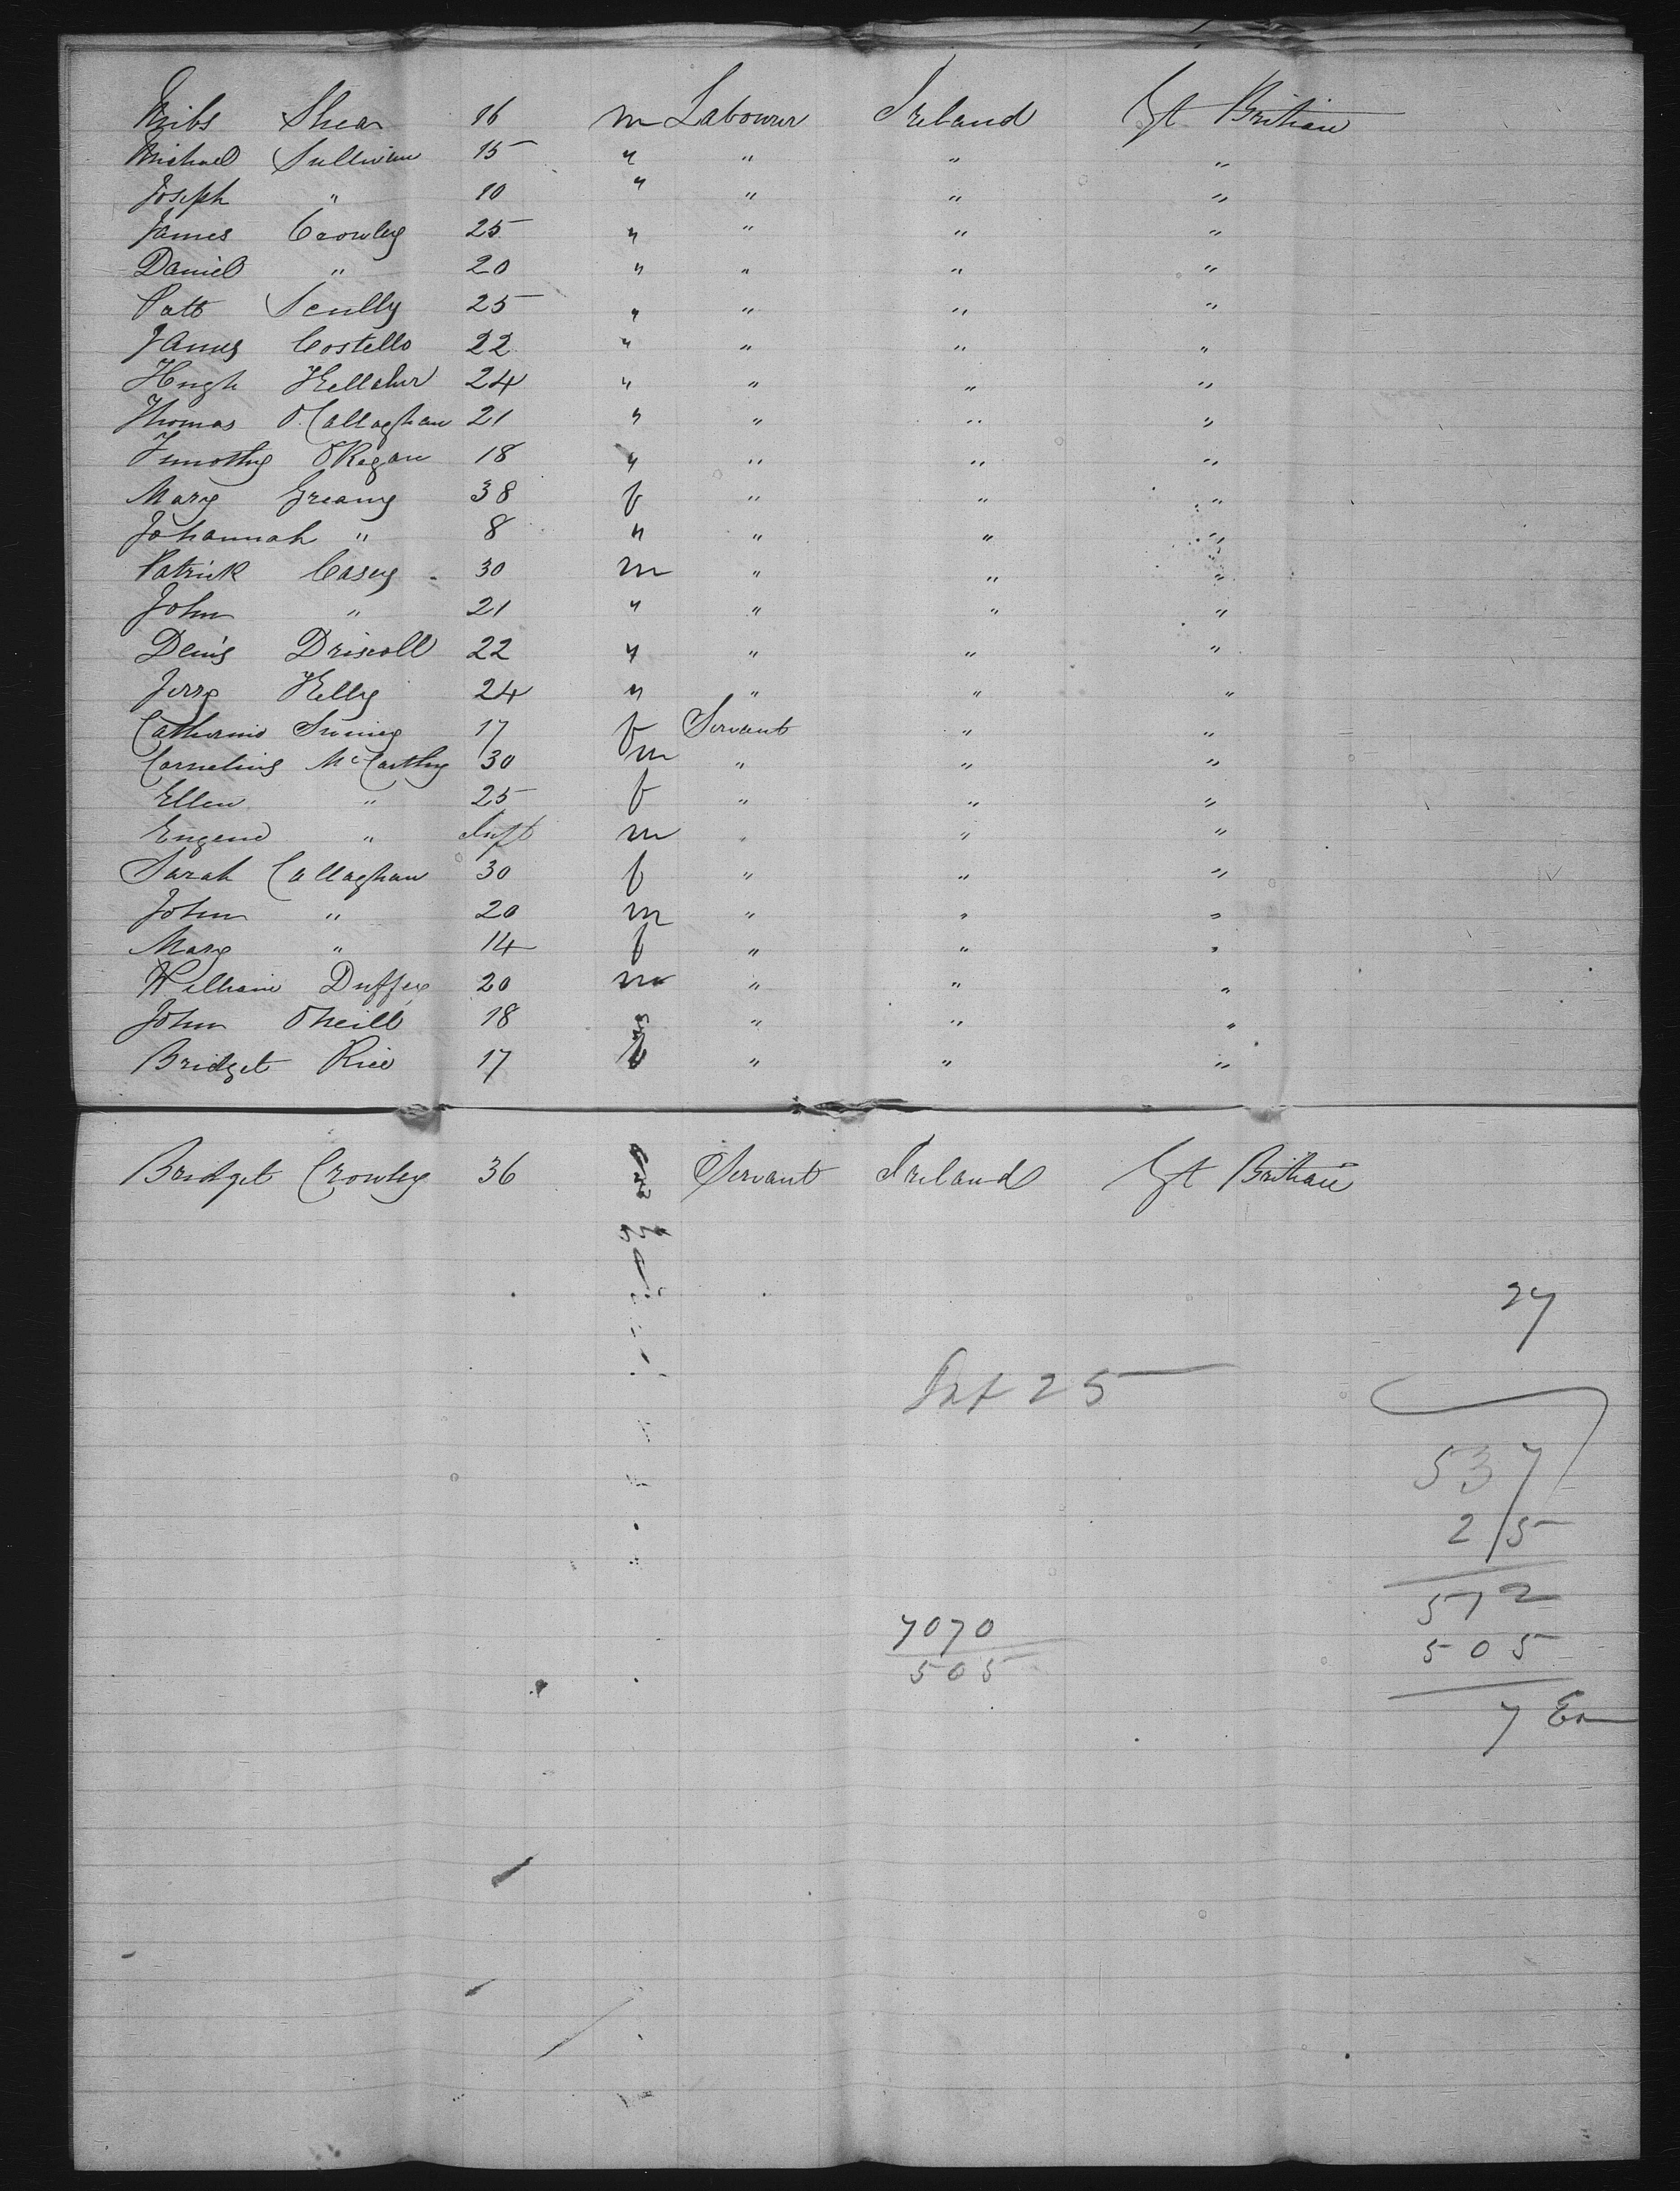 Shea 16 m Labourer Ireland Gt Britian
Michael Sullivan 15 " " " "
Joseph " 10 " " " "
James Crowley 25 " " " "
Daniel " 20 " " " "
Patt Scully 25 " " " "
James Costello 22 " " " "
Hugh Kellaher 24 " " " "
Thomas O.Callaghan 21 " " " "
Timothy ORegan 18 " " " "
Mary Greany 38 f " " "
Johannah " 8 " " " "
Patrick Casey 30 m " " "
John " 21 " " " "
Denis Driscoll 22 " " " "
Jerry Kelly 24 " " " "
Catherine 17 f Servant " "
Cornelius McCarthy 30 m " " "
Ellen " 25 f " " "
Eugene " Inft m " " "
Sarah Callaghan 30 f " " "
John " 20 m " " "
Mary " 14 f " " "
William Duffey 20 m " " "
John ONeill 18 " " "
Bridget Rice 17 " " "
Bridget Crowley 36 Servant Ireland Gt Britian
27
Inf 25
537
25
512
7070
505
505
7